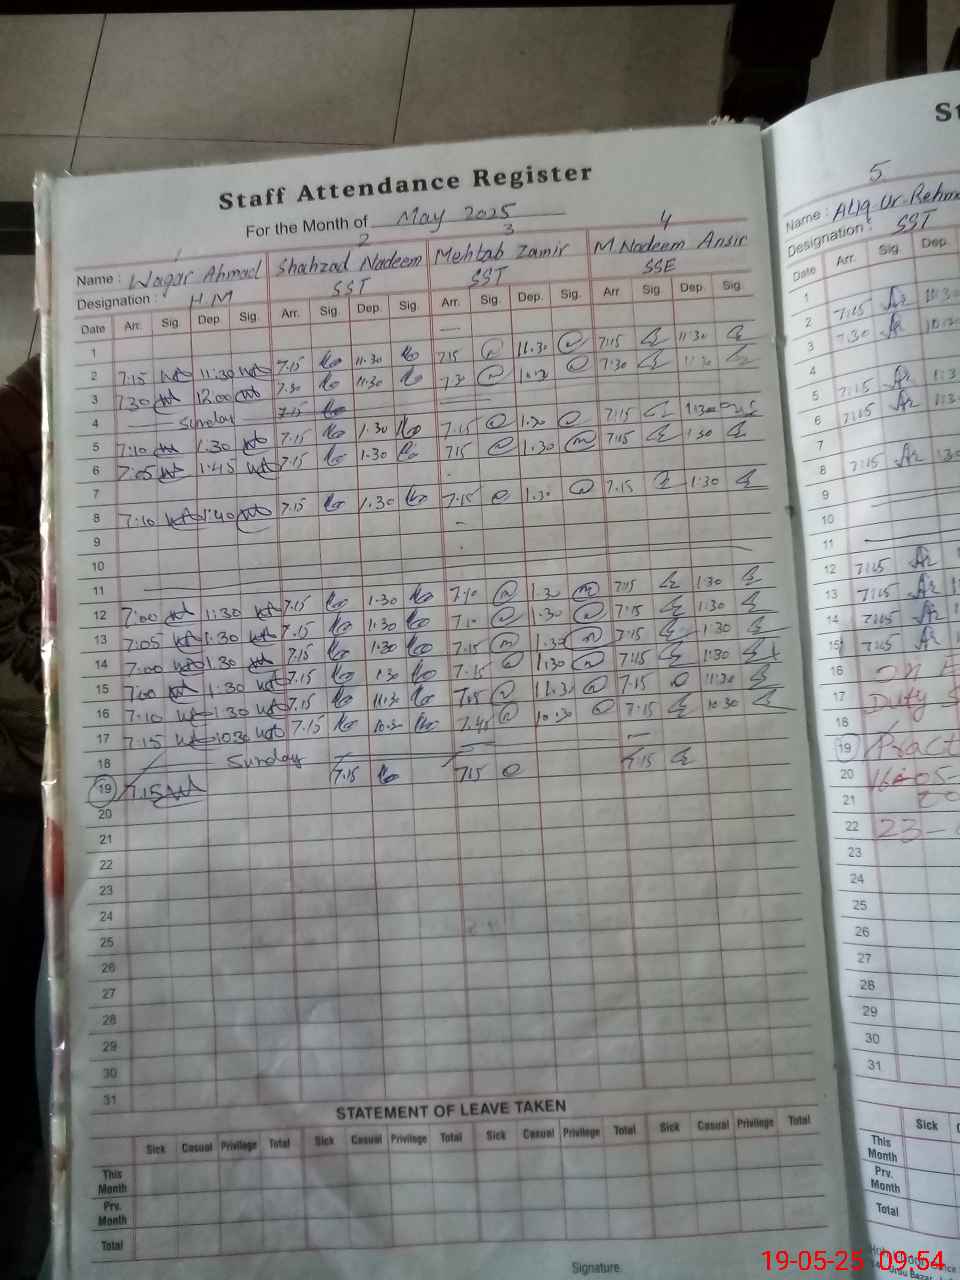 Staff Attendance Register
For the Month of May 2025
1 2 3 4
Name : Waqar Ahmad Shahzad Nadeem Mehtab Zamir M. Nadeem Ansir
Designation : H.M SST SST SSE
Date Arr. Sig. Dep. Sig. Arr. Sig. Dep. Sig. Arr. Sig. Dep. Sig. Arr. Sig. Dep. Sig.
1
2 7:15 11:30 7.15 11.30 7.15 11.30 7:15 11:30
3 7.30 12.00 7.30 11.30 7:30
4 Sunday 7.15
5 7:10 1.30 7.15 1.30 7.15 1.30 7:15 1:30
6 7:05 1:45 7.15 1.30 7.15 1.30 7:15 1:30
7
8 7:10 1:40 7.15 1.30 7.15 1.30 7.15 1:30
9
10
11
12 7:00 1:30 7.15 1.30 7.10 1.30 7:15 1:30
13 7:05 1:30 7.15 1.30 7.10 1.30 7:15 1:30
14 7:00 1.30 7.15 1.30 7.15 1.30 7:15 1:30
15 7:00 1:30 7.15 1.30 7.15 1.30 7:15 1:30
16 7:10 1:30 7.15 11.30 11.30 7.15 11:30
17 7:15 10:30 7.15 10.30 7.45 10.30 7:15 10.30
18 Sunday
19 7.15 7.15 7.15 7.15
20
21
22
23
24
25
26
27
28
29
30
31
STATEMENT OF LEAVE TAKEN
Sick Casual Privilege Total Sick Casual Privilege Total Sick Casual Privilege Total Sick Casual Privilege Total
This Month
Prv. Month
Total
Signature.
5
Name :
Designation : SST
Date Arr. Sig. Dep.
1
2 7:15
3 7:30
4
5 7:15
6 7:15
7
8 7:15
9
10
11
12 7:15
13 7:15
14 7:15
15 7:15
16 on
17 Duty
18
19
20
21
22 23-
23
24
25
26
27
28
29
30
31
Sick
This Month
Prv. Month
Total
19-05-25 09:54